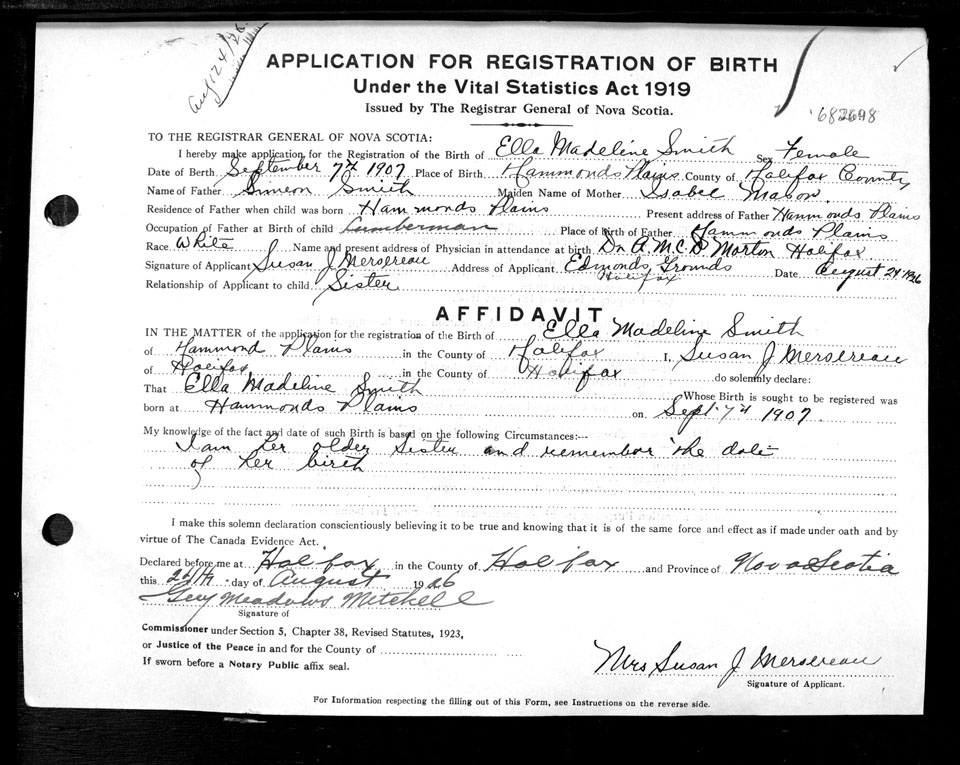 Aug 24/26
APPLICATION FOR REGISTRATION OF BIRTH
Under the Vital Statistics Act 1919
Issued by The Registrar General of Nova Scotia.
682698
TO THE REGISTRAR GENERAL OF NOVA SCOTIA:
I hereby make application for the Registration of the Birth of Ella Madeline Smith Sex Female
Date of Berth September 7th 1907 Place of Birth Hammonds Plains County of Halifax County
Name of Father Simeon Smith Maiden Name of Mother Isabel Mason.
Residence of Father when child was born Hammonds Plains Present address of Father Hammonds Plains
Occupation of Father at Birth of child Lumberman Place of Birth of Father Hammonds Plains
Race White Name and present address of Physician in attendance at birth Dr A. McD Morton Halifax
Signature of Applicant Susan J Mersereau Address of Applicant Edmonds Grounds Halifax Date August 24 1926
Relationship of Applicant to child Sister
AFFIDAVIT
IN THE MATTER of the application for the registration of the Birth of Ella Madeline Smith
of Hammond Plains in the County of Halifax I, Susan J Mersereau
of Halifax in the County of Halifax do solemnly declare:
That Ella Madeline Smith Whose Birth is sought to be registered was
born at Hammonds Plains on Sept. 7th 1907.
My knowledge of the fact and date of such Birth is based on the following Circumstances:--
I am her older Sister and remember the date
of her birth
I make this solemn declaration conscientiously believing it to be true and knowing that it is of the same force and effect as if made under oath and by
virtue of The Canada Evidence Act.
Declared before me at Halifax in the County of Halifax and Province of Nova Scotia
this 24th day of August 1926
Guy Meadows Mitchell
Signature of
Commissioner under Section 5, Chapter 38, Revised Statutes, 1923,
or Justice of the Peace in and for the County of
If sworn before a Notary Public affix seal.
Mrs Susan J Mersereau
Signature of Applicant.
For Information respecting the filling out of this Form, see Instructions on the reverse side.